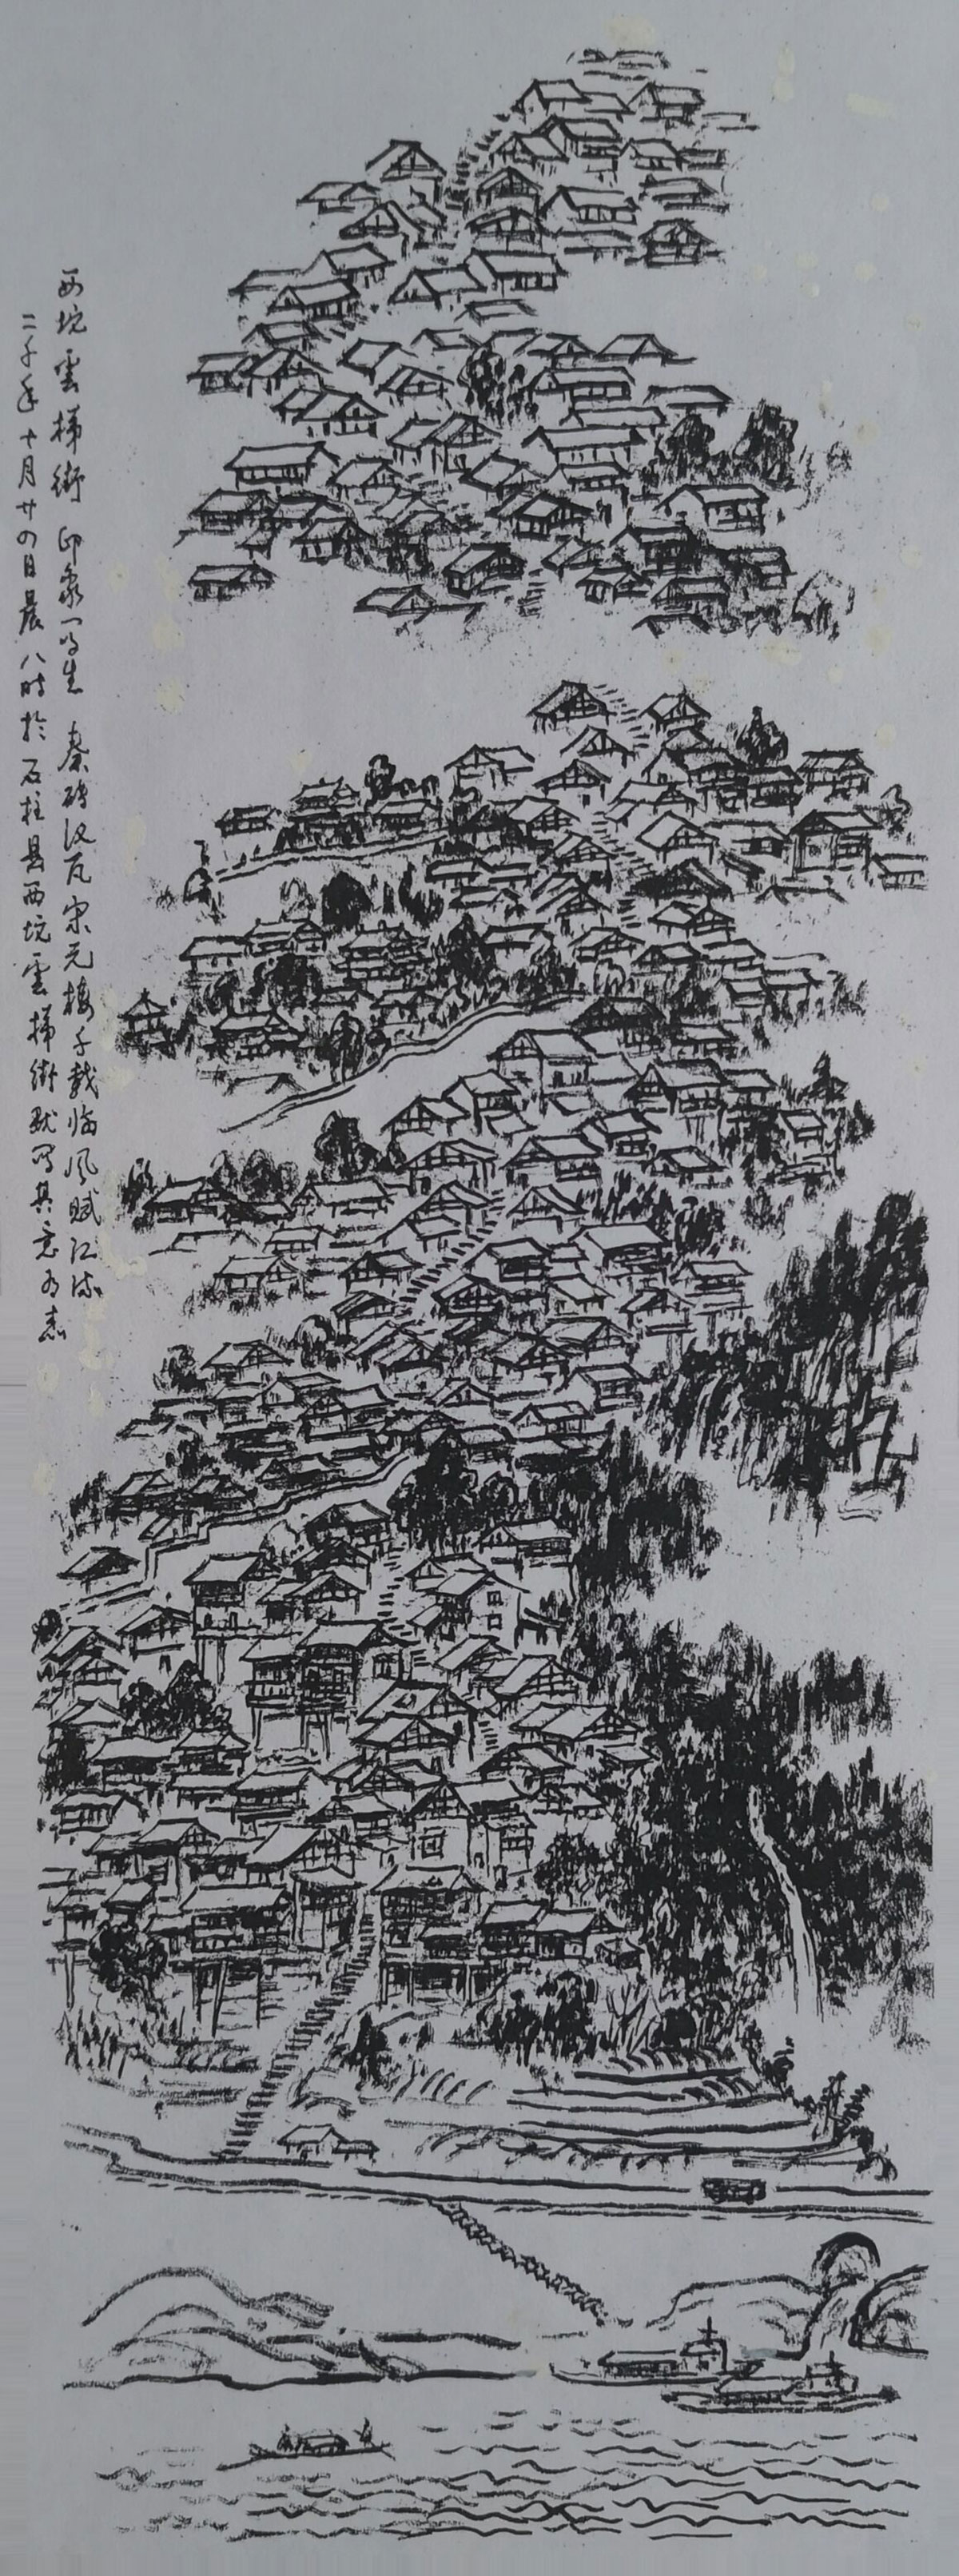 西坑雲梯街印象写生 秦砖汉瓦宋元楼千载临风赋江流
二千年十月廿四日晨八时於石柱县西坑雲梯街默写其意为志